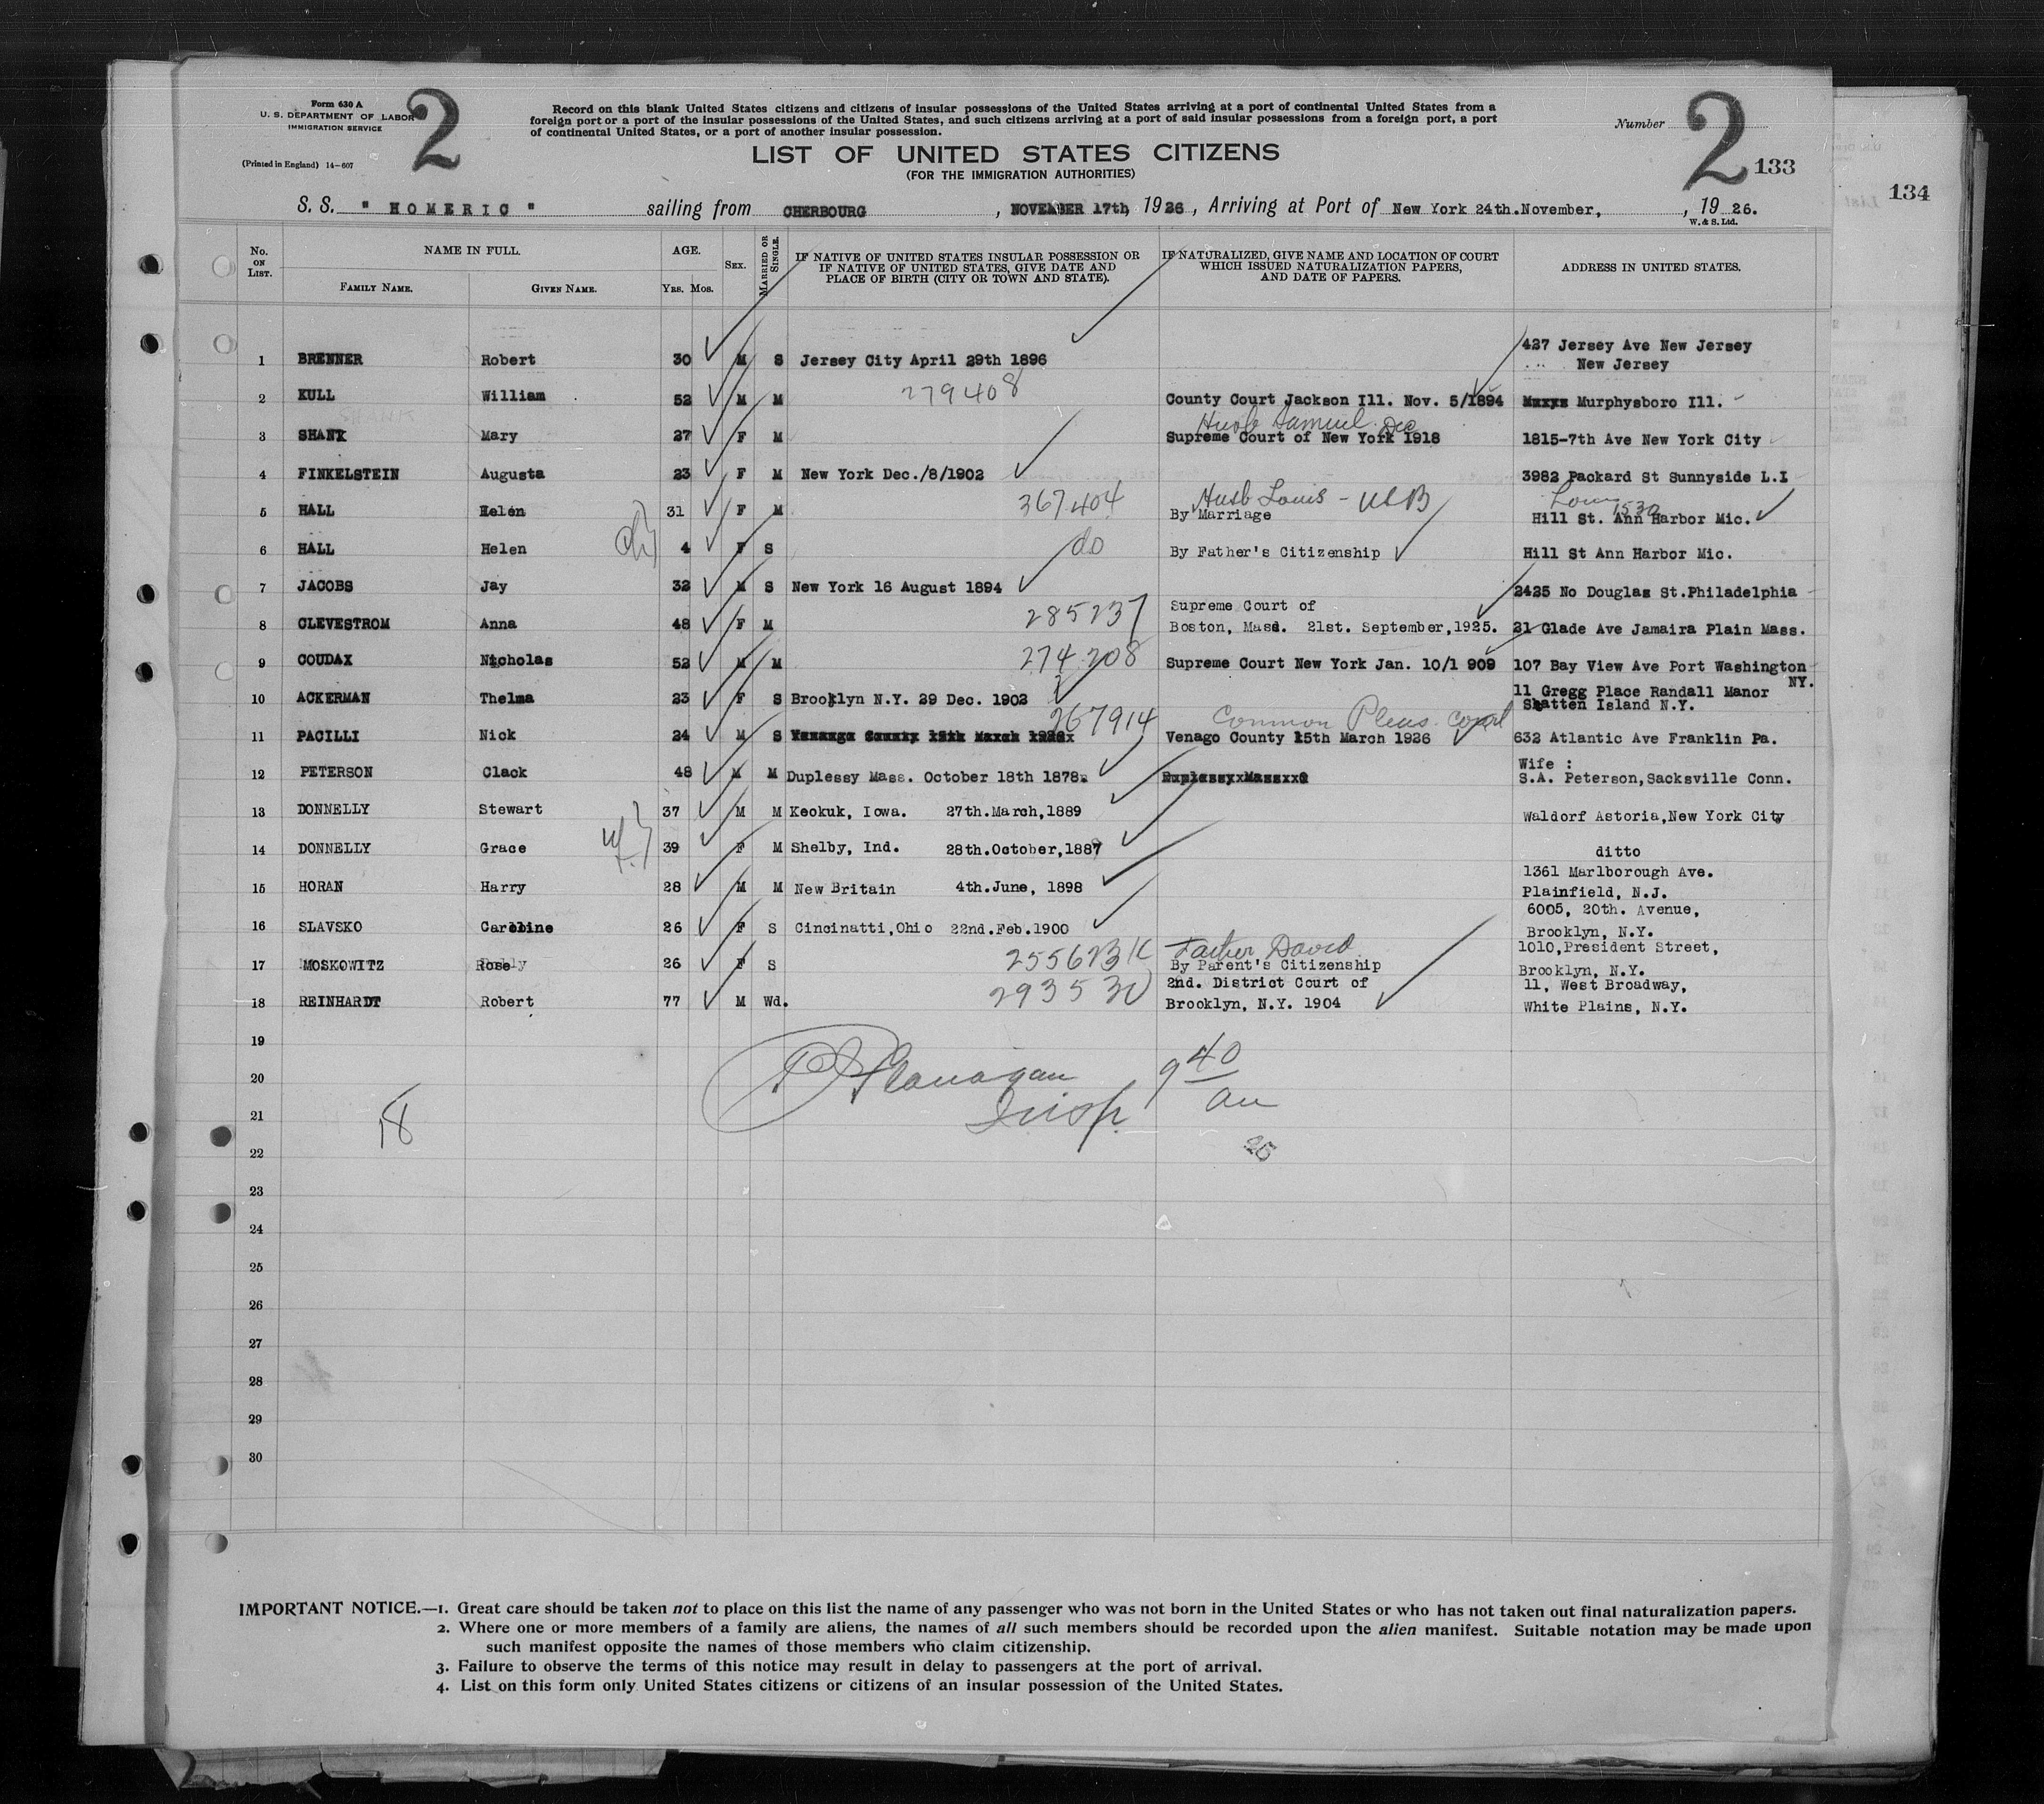 Form 630 A
U. S. DEPARTMENT OF LABOR
IMMIGRATION SERVICE
(Printed in England) 14-607
2
Record on this blank United States citizens and citizens of insular possessions of the United States arriving at a port of continental United States from a
foreign port or a port of the insular possessions of the United States, and such citizens arriving at a port of said insular possessions from a foreign port, a port
of continental United States, or a port of another insular possession.
LIST OF UNITED STATES CITIZENS
(FOR THE IMMIGRATION AUTHORITIES)
Number 2
133
134
S. S. " HOMERIC " sailing from CHERBOURG, NOVEMBER 17th, 1926, Arriving at Port of New York 24th.November, , 1926.
W. & S. Ltd.
No. ON LIST. NAME IN FULL. AGE. SEX. MARRIED OR SINGLE. IF NATIVE OF UNITED STATES INSULAR POSSESSION OR IF NATIVE OF UNITED STATES, GIVE DATE AND PLACE OF BIRTH (CITY OR TOWN AND STATE). IF NATURALIZED, GIVE NAME AND LOCATION OF COURT WHICH ISSUED NATURALIZATION PAPERS, AND DATE OF PAPERS. ADDRESS IN UNITED STATES.
FAMILY NAME. GIVEN NAME. YRS. MOS.
427 Jersey Ave New Jersey
1 BRENNER Robert 30 M S Jersey City April 29th 1896 New Jersey
2 KULL William 52 M M 279408 County Court Jackson Ill. Nov. 5/1894 Murphysboro Ill.
SHANK Husb Samuel Dec
3 SHANK Mary 27 F M Supreme Court of New York 1918 1815-7th Ave New York City
4 FINKELSTEIN Augusta 23 F M New York Dec./8/1902 3982 Packard St Sunnyside L.I
367404 Husb Louis - USB Louis 1530
5 HALL Helen 31 F M By Marriage Hill St. Ann Harbor Mic.
6 HALL Helen 4 F S do By Father's Citizenship Hill St Ann Harbor Mic.
7 JACOBS Jay 32 M S New York 16 August 1894 2425 No Douglas St.Philadelphia
Supreme Court of
8 CLEVESTROM Anna 48 F M 285237 Boston, Mass. 21st. September,1925. 21 Glade Ave Jamaira Plain Mass.
9 COUDAX Nicholas 52 M M 274208 Supreme Court New York Jan. 10/1 909 107 Bay View Ave Port Washington
NY.
11 Gregg Place Randall Manor
10 ACKERMAN Thelma 23 F S Brooklyn N.Y. 29 Dec. 1902 Statten Island N.Y.
267914 Common Pleas Court
11 PACILLI Nick 24 M S Venago County 15th March 1926 632 Atlantic Ave Franklin Pa.
Wife :
12 PETERSON Clack 48 M M Duplessy Mass. October 18th 1878. S.A. Peterson,Sacksville Conn.
13 DONNELLY Stewart 37 M M Keokuk, Iowa. 27th.March,1889 Waldorf Astoria,New York City
14 DONNELLY Grace 39 F M Shelby, Ind. 28th.October,1887 ditto
1361 Marlborough Ave.
15 HORAN Harry 28 M M New Britain 4th.June, 1898 Plainfield, N.J.
6005, 20th. Avenue,
16 SLAVSKO Caroline 26 F S Cincinatti,Ohio 22nd.Feb.1900 Brooklyn, N.Y.
255623 Father David 1010,President Street,
17 MOSKOWITZ Rose 26 F S By Parent's Citizenship Brooklyn, N.Y.
2nd. District Court of 11, West Broadway,
18 REINHARDT Robert 77 M Wd. 29353 Brooklyn, N.Y. 1904 White Plains, N.Y.
19
20 P Flanagan 9 40
21 18 Insp. am
22 26
23
24
25
26
27
28
29
30
IMPORTANT NOTICE.—1. Great care should be taken not to place on this list the name of any passenger who was not born in the United States or who has not taken out final naturalization papers.
2. Where one or more members of a family are aliens, the names of all such members should be recorded upon the alien manifest. Suitable notation may be made upon
such manifest opposite the names of those members who claim citizenship.
3. Failure to observe the terms of this notice may result in delay to passengers at the port of arrival.
4. List on this form only United States citizens or citizens of an insular possession of the United States.